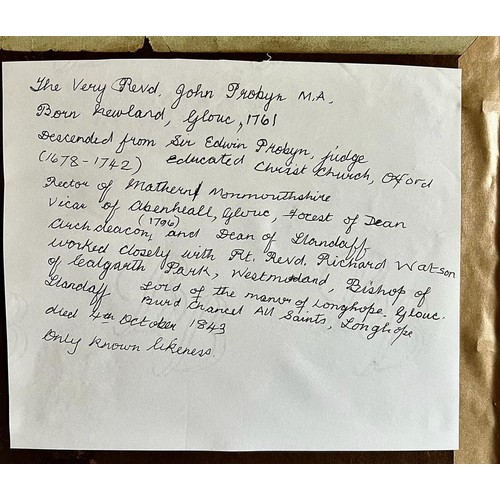 The Very Revd. John Probyn M.A,
Born Newland, Glouc, 1761
Descended from Sir Edwin Probyn, judge
(1678-1742) educated Christ Church, Oxford
Rector of Mathern Monmouthshire
Vicar of Abenheall, Glouc, Forest of Dean
Archdeacon, (1796) and Dean of Llandaff
worked closely with Rt. Revd. Richard Watson
of Calgarth Park, Westmorland, Bishop of
Llandaff Lord of the manor of Longhope. Glouc.
Burd Chancel All Saints, Longhope
died 4th October 1843
Only known likeness.